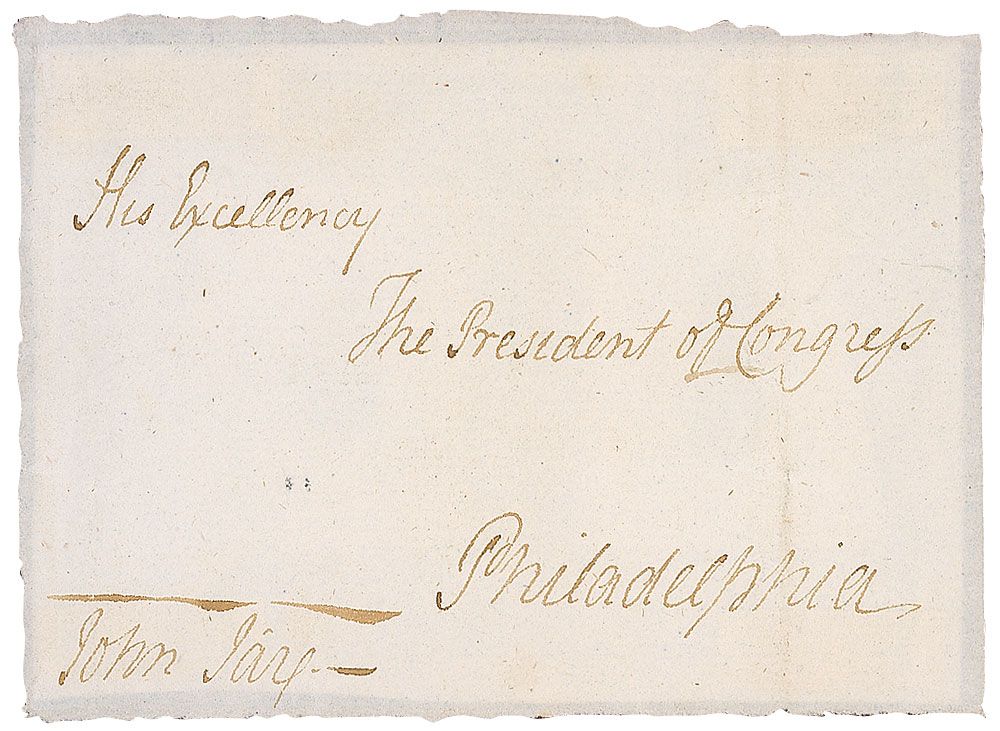 His Excellency
The President of Congreſs
Philadelphia
John Jay